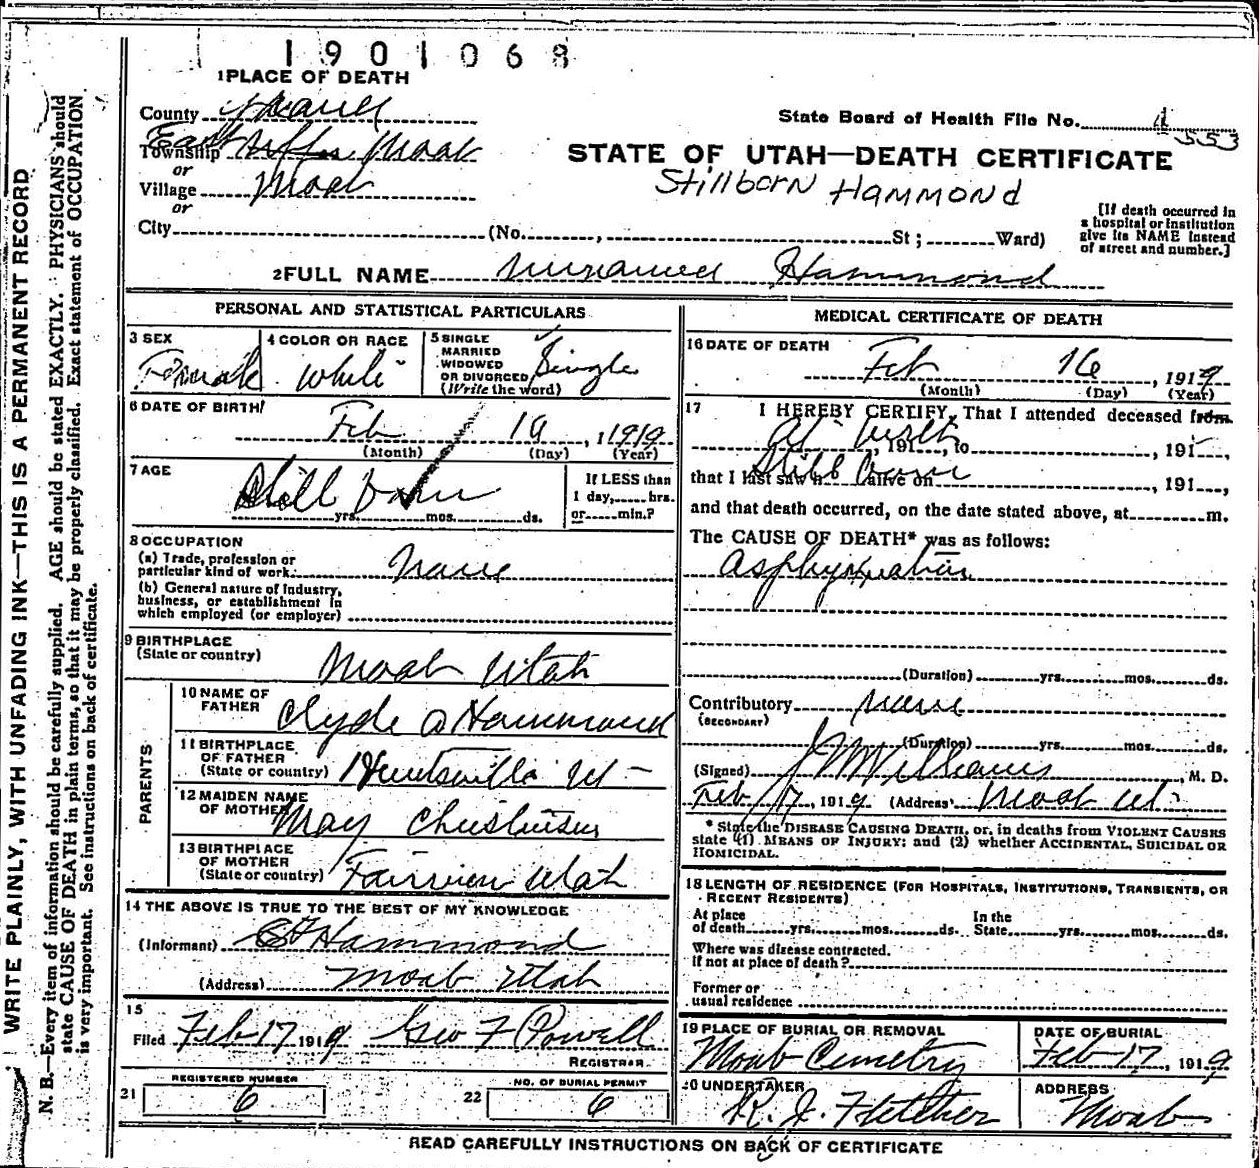 1901068
1 PLACE OF DEATH
County Grand
State Board of Health File No. 553
Township East Moab
STATE OF UTAH—DEATH CERTIFICATE
or
Village Moab
Stillborn Hammond
or
City (No. , St ; Ward)
[If death occurred in a hospital or institution give its NAME instead of street and number.]
2 FULL NAME Hammond
PERSONAL AND STATISTICAL PARTICULARS
3 SEX Female
4 COLOR OR RACE White
5 SINGLE MARRIED WIDOWED OR DIVORCED (Write the word) Single
6 DATE OF BIRTH Feb , 1919
(Month) (Day) (Year)
7 AGE Still born
yrs. mos. ds.
If LESS than 1 day, hrs. or min.?
8 OCCUPATION
(a) Trade, profession or particular kind of work: None
(b) General nature of Industry, business, or establishment in which employed (or employer)
9 BIRTHPLACE
(State or country) Moab Utah
PARENTS
10 NAME OF FATHER Clyde a Hammond
11 BIRTHPLACE OF FATHER (State or country) Huntsville Ut
12 MAIDEN NAME OF MOTHER May
13 BIRTHPLACE OF MOTHER (State or country) Fairview Utah
14 THE ABOVE IS TRUE TO THE BEST OF MY KNOWLEDGE
(Informant) Hammond
(Address) Moab Utah
15
Filed Feb 17 1919 Geo F Powell
REGISTRAR
21 REGISTERED NUMBER 6
22 NO. OF BURIAL PERMIT 6
MEDICAL CERTIFICATE OF DEATH
16 DATE OF DEATH
Feb 16, 1919
(Month) (Day) (Year)
17 I HEREBY CERTIFY, That I attended deceased from
at birth, 191 , to , 191 ,
that I last saw h alive on Still born , 191 ,
and that death occurred, on the date stated above, at m.
The CAUSE OF DEATH* was as follows:
Asphyxiation
(Duration) yrs. mos. ds.
Contributory none
(SECONDARY)
(Duration) yrs. mos. ds.
(Signed) J W Williams, M. D.
Feb 17, 1919 (Address) Moab Ut
* State the DISEASE CAUSING DEATH, or, in deaths from VIOLENT CAUSES
state (1) MEANS OF INJURY: and (2) whether ACCIDENTAL, SUICIDAL OR
HOMICIDAL.
18 LENGTH OF RESIDENCE (FOR HOSPITALS, INSTITUTIONS, TRANSIENTS, OR
RECENT RESIDENTS)
At place of death yrs. mos. ds. In the State yrs. mos. ds.
Where was disease contracted.
If not at place of death?
Former or
usual residence
19 PLACE OF BURIAL OR REMOVAL
Moab Cemetry
DATE OF BURIAL
Feb 17, 1919
20 UNDERTAKER
R. J. Fletcher
ADDRESS
Moab
READ CAREFULLY INSTRUCTIONS ON BACK OF CERTIFICATE
WRITE PLAINLY, WITH UNFADING INK—THIS IS A PERMANENT RECORD
N. B.—Every item of information should be carefully supplied. AGE should be stated EXACTLY. PHYSICIANS should
state CAUSE OF DEATH in plain terms, so that it may be properly classified. Exact statement of OCCUPATION
is very important. See instructions on back of certificate.